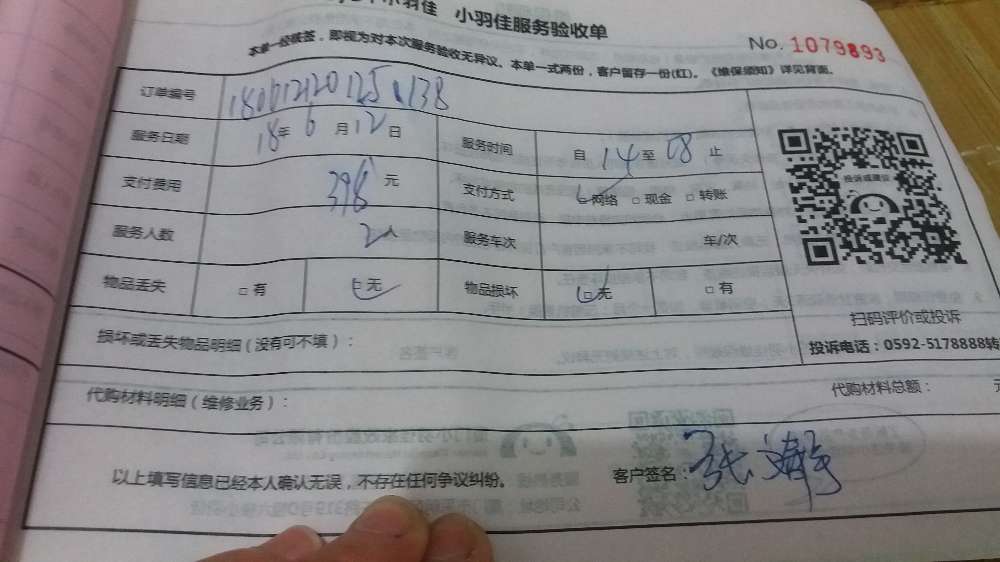 小羽佳 小羽佳服务验收单
No. 1079893
本单一经核签，即视为对本次服务验收无异议、本单一式两份，客户留存一份(红)。《维保须知》详见背面。
订单编号
服务日期 18年 6 月 12 日 服务时间 自 14 至 08 止
支付费用 398 元 支付方式 网络 □ 现金 □ 转账
服务人数 2人 服务车次 车/次
物品丢失 □ 有 □ 无 物品损坏 □ 无 □ 有
投诉或建议
扫码评价或投诉
投诉电话：0592-5178888转
损坏或丢失物品明细（没有可不填）：
代购材料明细（维修业务）： 代购材料总额：
以上填写信息已经本人确认无误，不存在任何争议纠纷。 客户签名：